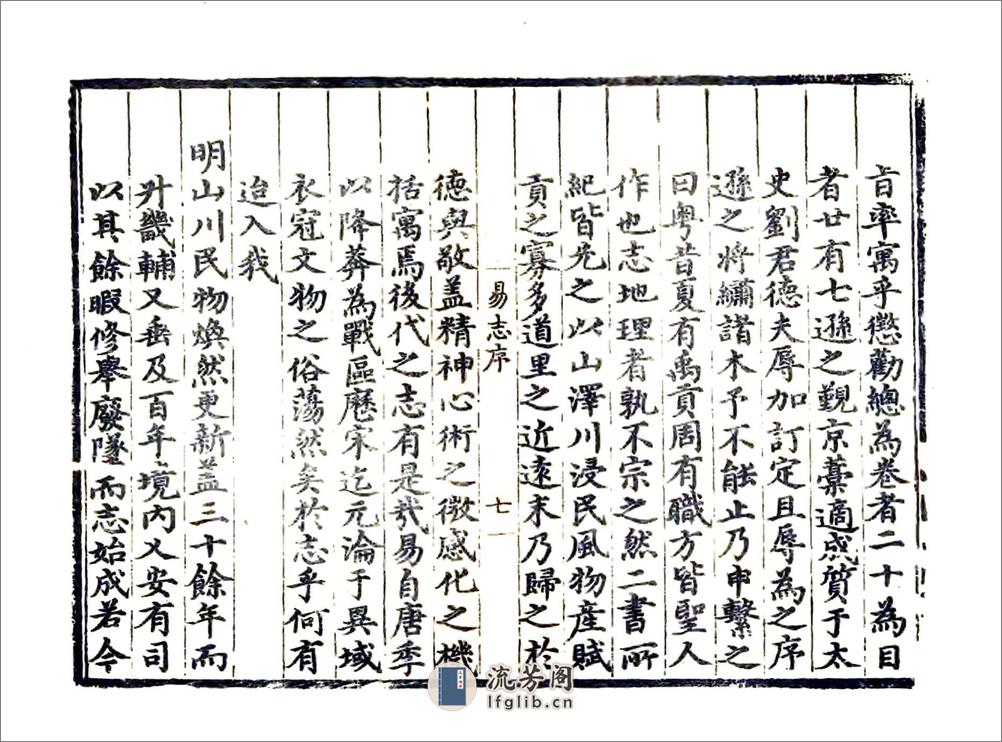 旨率寓乎懲勸總為卷者二十為目
者廿有七遜之覲京藁適成質于太
史劉君德夫辱加訂定且辱為之序
遜之將繡諸木予不能止乃申繫之
曰粤昔夏有禹貢周有職方皆聖人
作也志地理者孰不宗之然二書所
紀皆先之以山澤川浸民風物産賦
貢之寡多道里之近遠末乃歸之於
易志序
七
德與敬盖精神心術之微感化之機
括寓焉後代之志有是㢤易自唐季
以降莽為戰區歷宋迄元淪于異域
衣冠文物之俗蕩然矣於志乎何有
迨入我
明山川民物煥然更新盖三十餘年而
升畿輔又垂及百年境内乂安有司
以其餘暇修舉廢墜而志始成若今
流芳阁
lfglib.cn